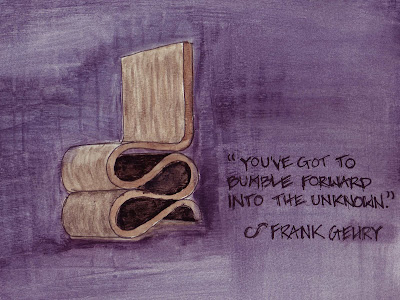 "YOU'VE GOT TO
BUMBLE FORWARD
INTO THE UNKNOWN."
FRANK GEHRY